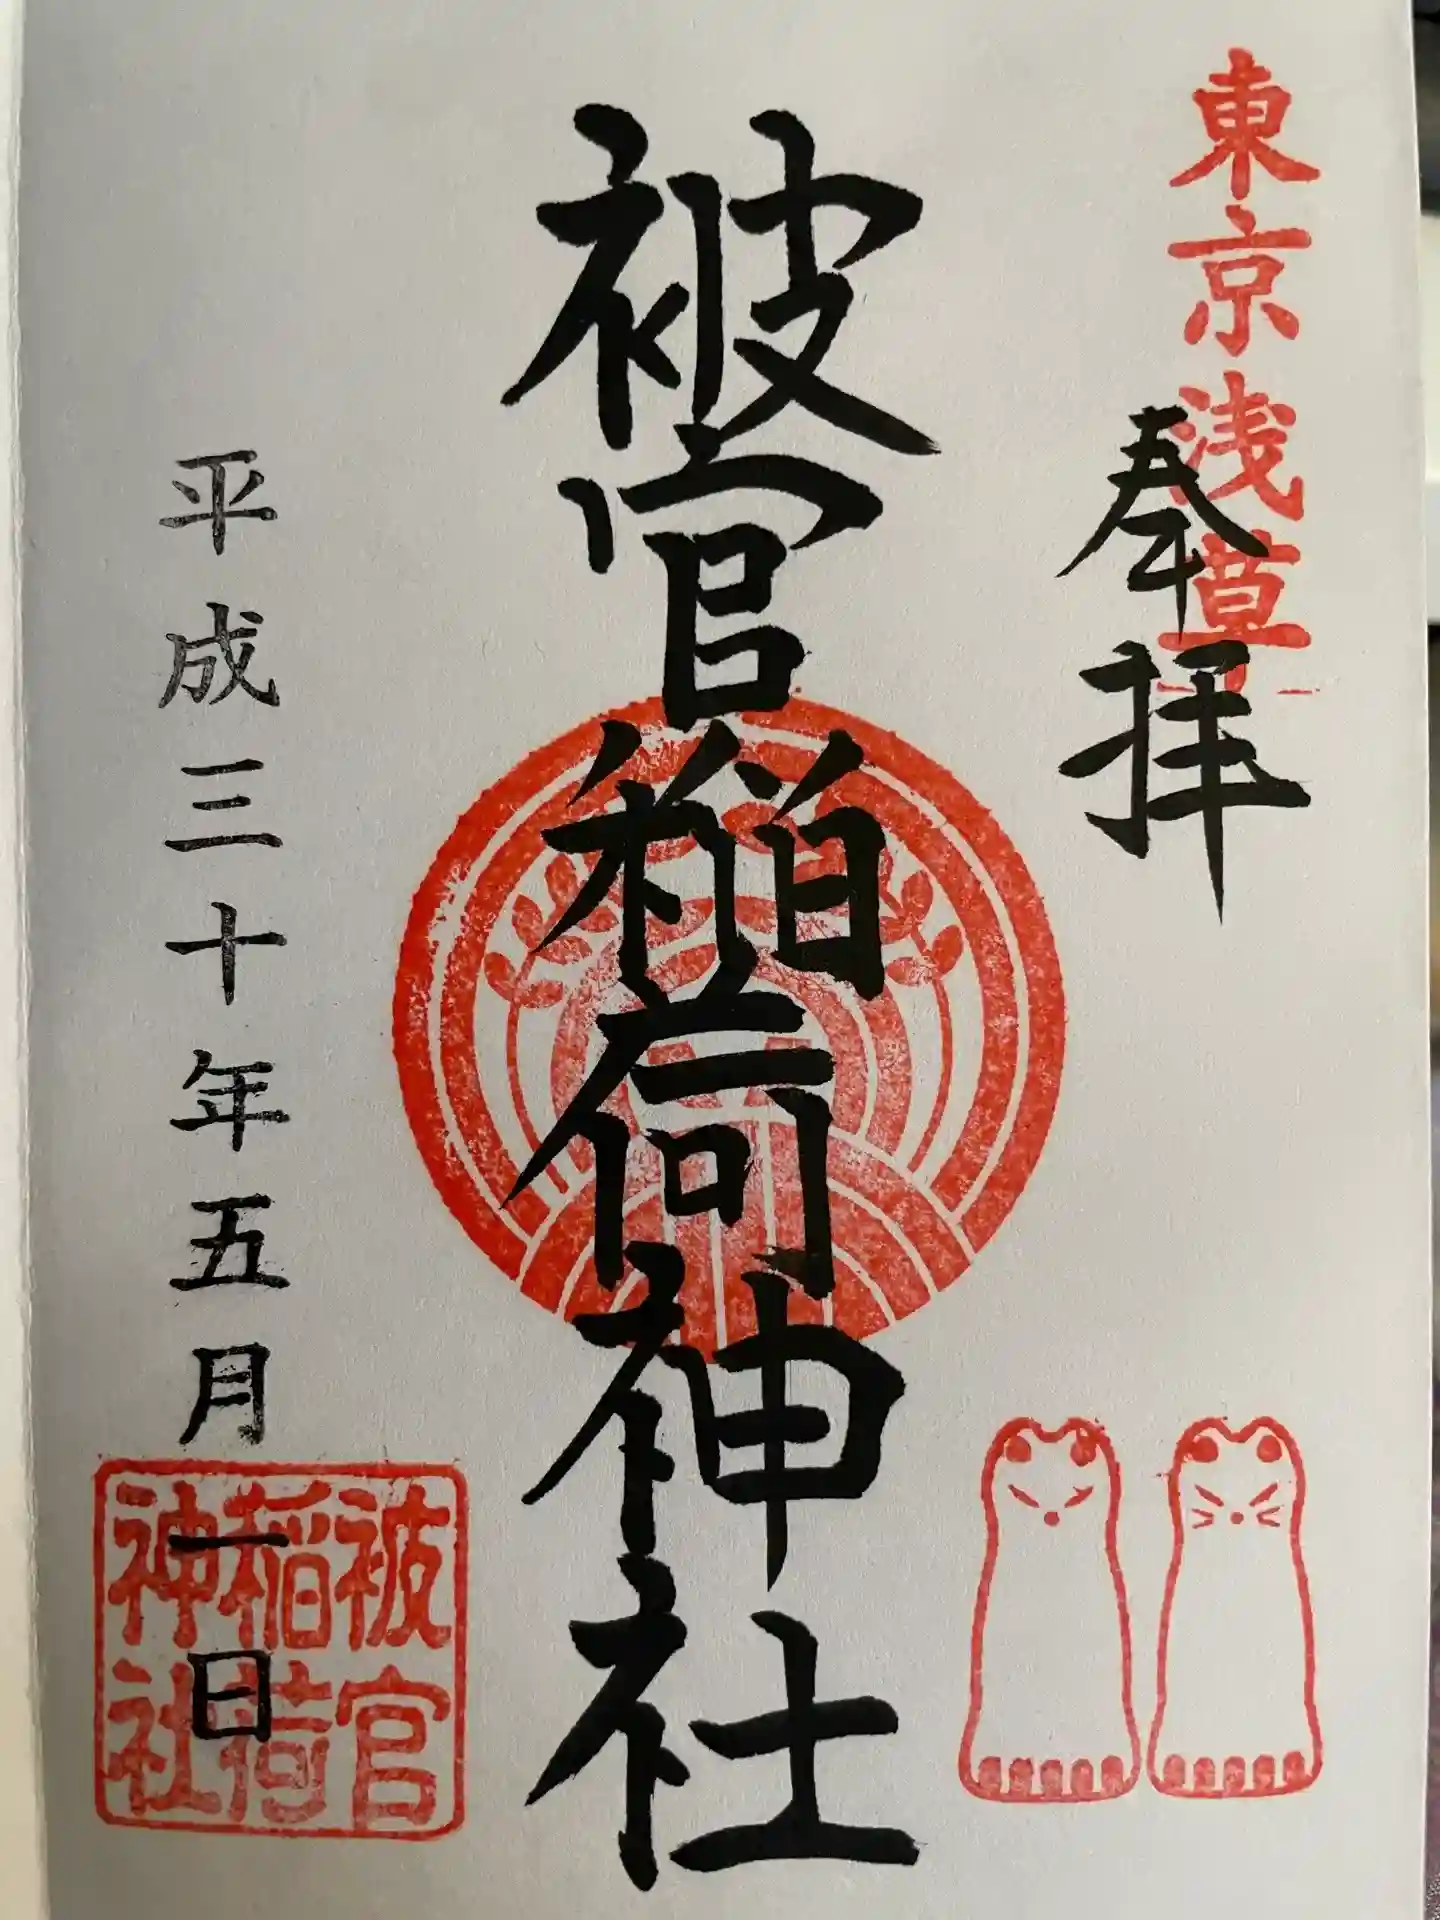 東京浅草
奉拝
被官稲荷神社
平成三十年五月一日
被官
稲荷
神社